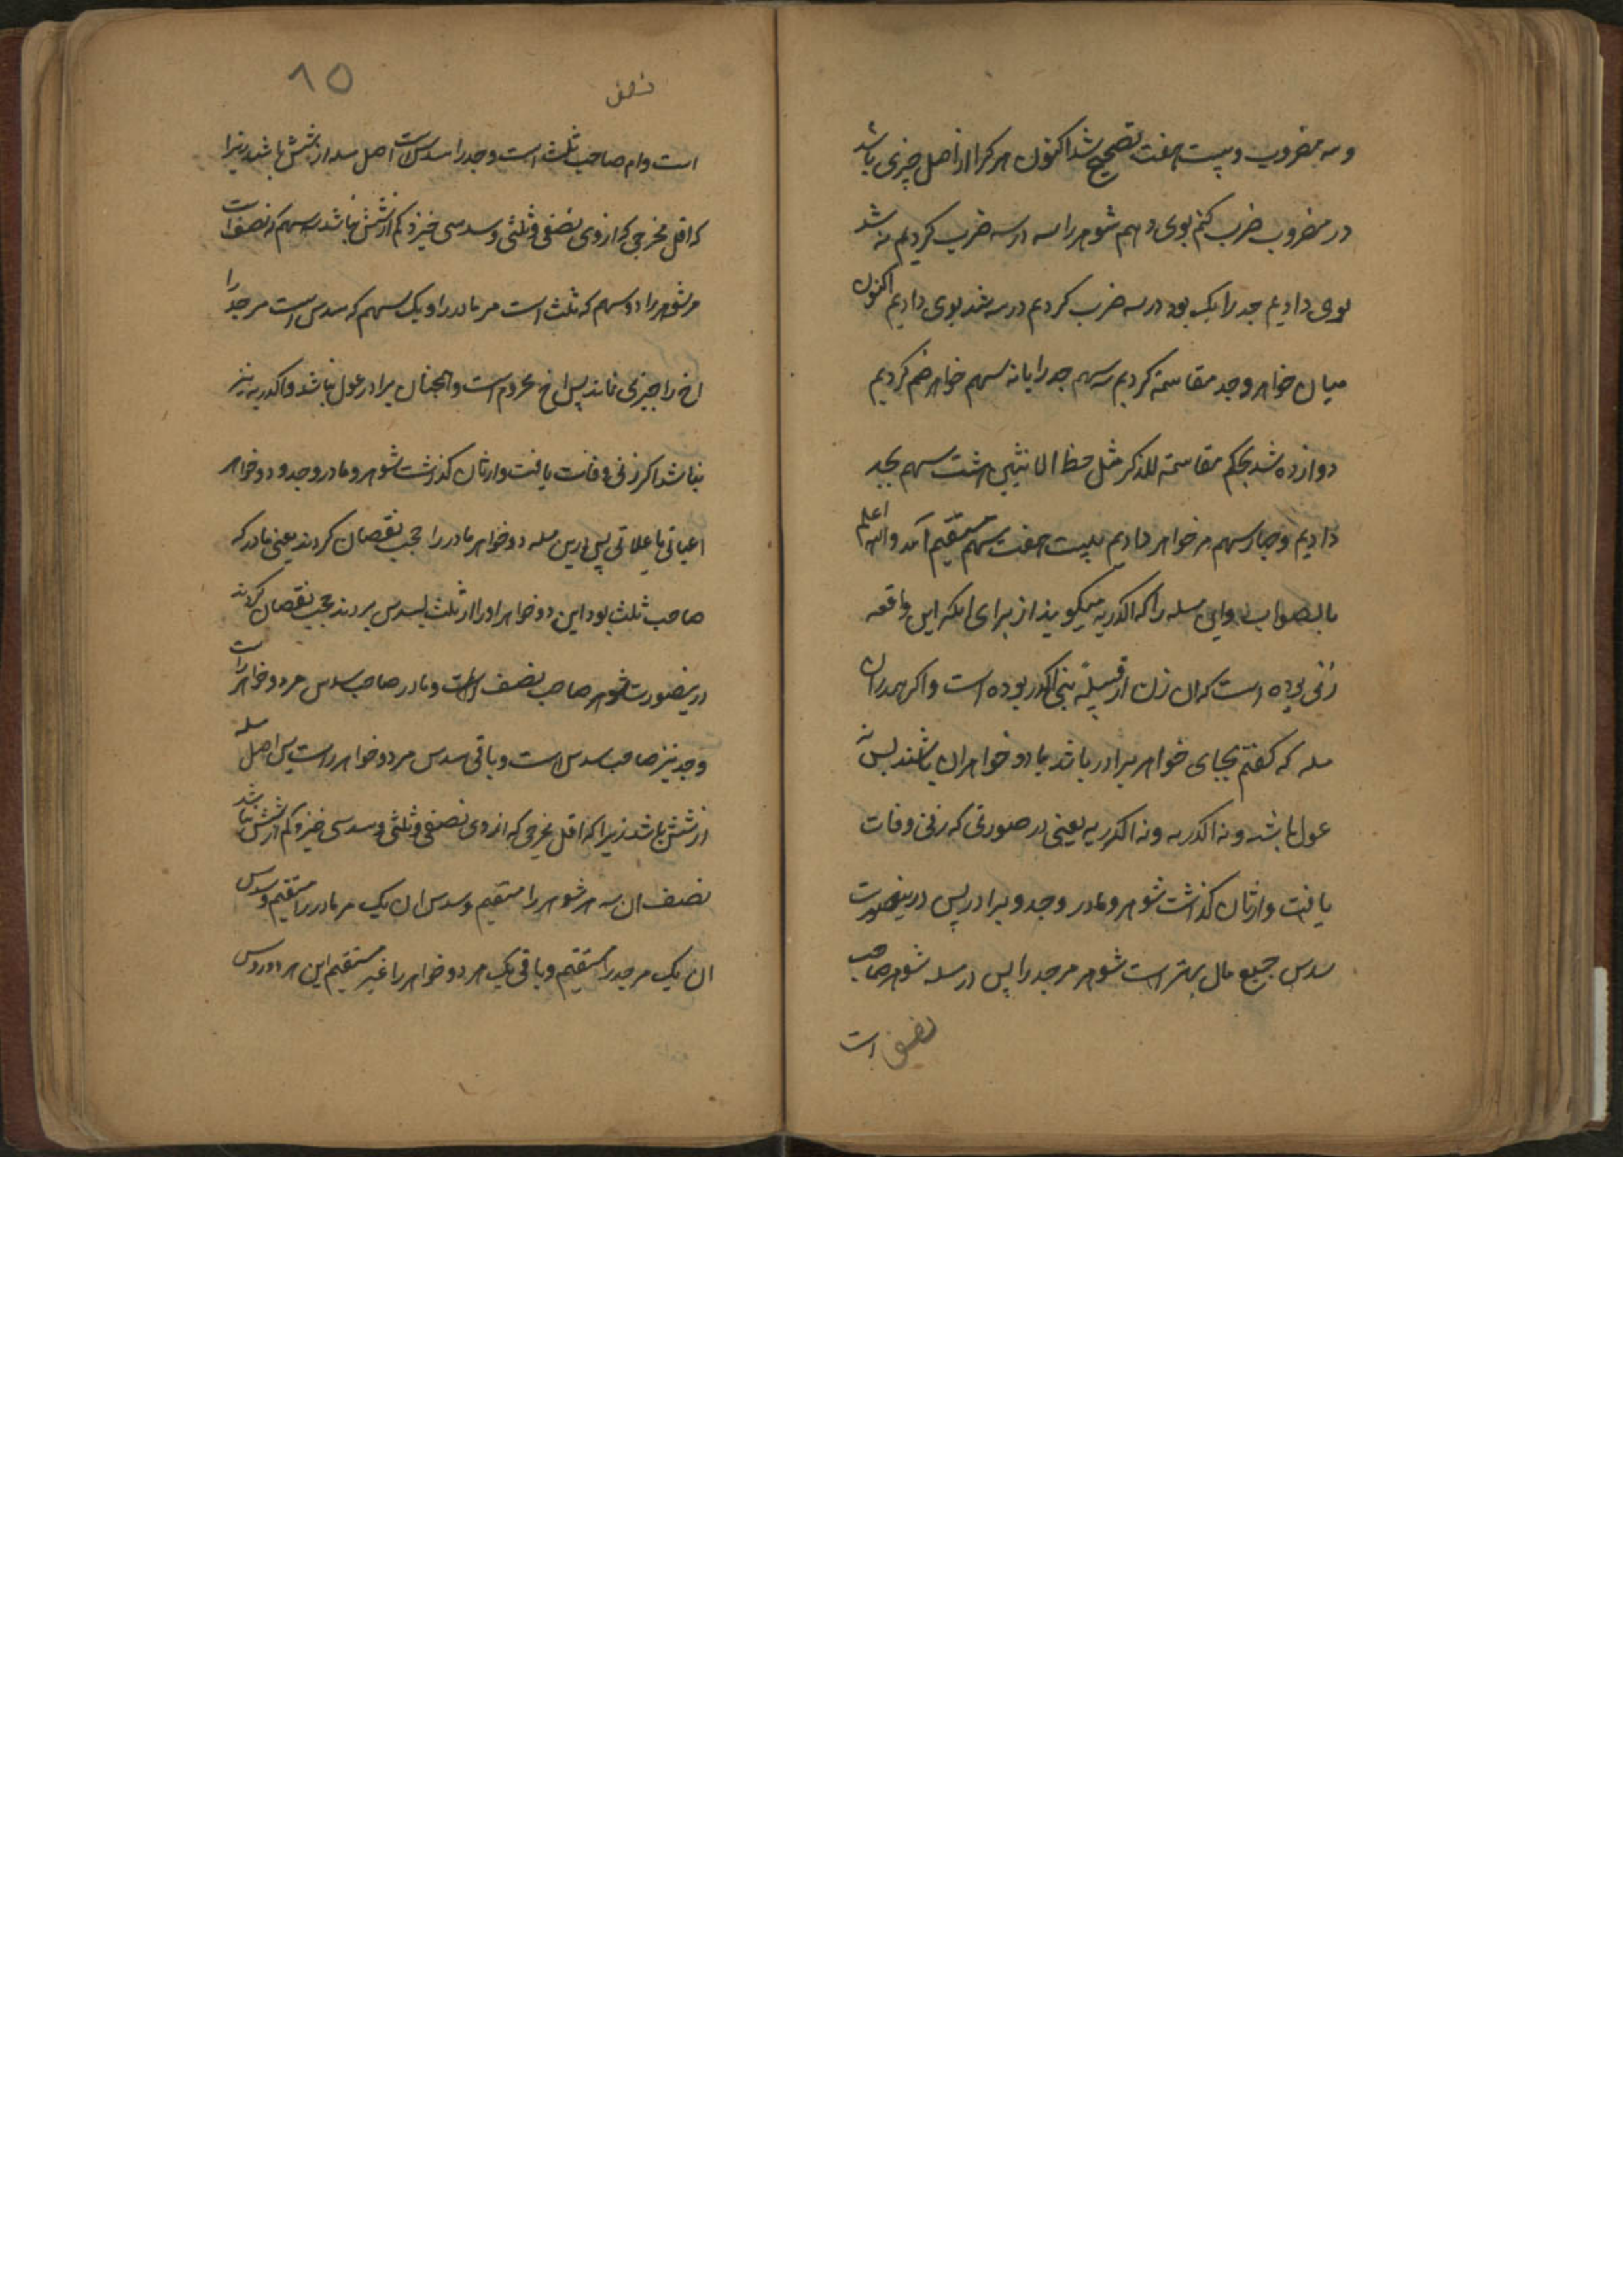 و سه مضروب و بیست هفت تصحیح شد اکنون هر کرا از اصل چیزی باشد
در مضروب ضرب کنم بوی دهم شوهر را سه در سه ضرب کردیم نه شد
بوی دادیم جد را یک بود در سه ضرب کردیم در سه شد بوی دادیم اکنون
میان خواهر و جد مقاسمه کردیم سه سهم جد را با نه سهم خواهر ضم کردیم
دوازده شد بحکم مقاسمة للذکر مثل حظ الانثیین هشت سهم بجد
دادیم و چهار سهم مر خواهر دادیم بیست هفت سهم مستقیم آمد والله اعلم
بالصواب واین مسله را که اکدریه میگویند از برای انکه این واقعه
زنی بوده است که ان زن از قبیلهٔ بنی اکدر بوده است و اکر هم دران
مسله که کفتم بجای خواهر برادر باشد یا دو خواهران باشند پس نه
عول باشد و نه اکدریه یعنی در صورتی که زنی وفات
یافت وارثان کذاشت شوهر و مادر و جد و برادر پس درینصورت
سدس جمیع مال بهتر است مر جد را پس در مسله شوهر صاحب
نصف است
نصف
۸۵
است وام صاحب ثلث است و جد را سدس است اصل مسله از شش باشد زیرا
که اقل مخرجی که از وی نصفی و ثلثی و سدسی خیزد کم از شش نباشد سه سهم که نصف است
مر شوهر را دو سهم که ثلث است مر مادر را و یک سهم که سدس است مر جد را
اخ را چیزی نماند پس اخ محروم است و همچنان برادر عول نباشد و اکدریه نیز
نباشد اکر زنی وفات یافت وارثان کذاشت شوهر و مادر و جد و دو خواهر
اعیانی یا علاتی پس درین مسله دو خواهر مادر را حجب نقصان کردند یعنی مادر که
صاحب ثلث بود این دو خواهر او را از ثلث بسدس بردند حجب نقصان کردند
درینصورت شوهر صاحب نصف است و مادر صاحب سدس مر دو خواهر را است
و جد نیز صاحب سدس است و باقی سدس مر دو خواهر راست پس اصل مسله
از شش باشد زیرا که اقل مخرجی که از وی نصفی و ثلثی و سدسی خیزد کم از شش نباشد
نصف ان سه مر شوهر را مستقیم و سدس ان یک مر مادر را مستقیم و سدس
ان یک مر جد را مستقیم و باقی یک مر دو خواهر را غیر مستقیم این هر دو روس